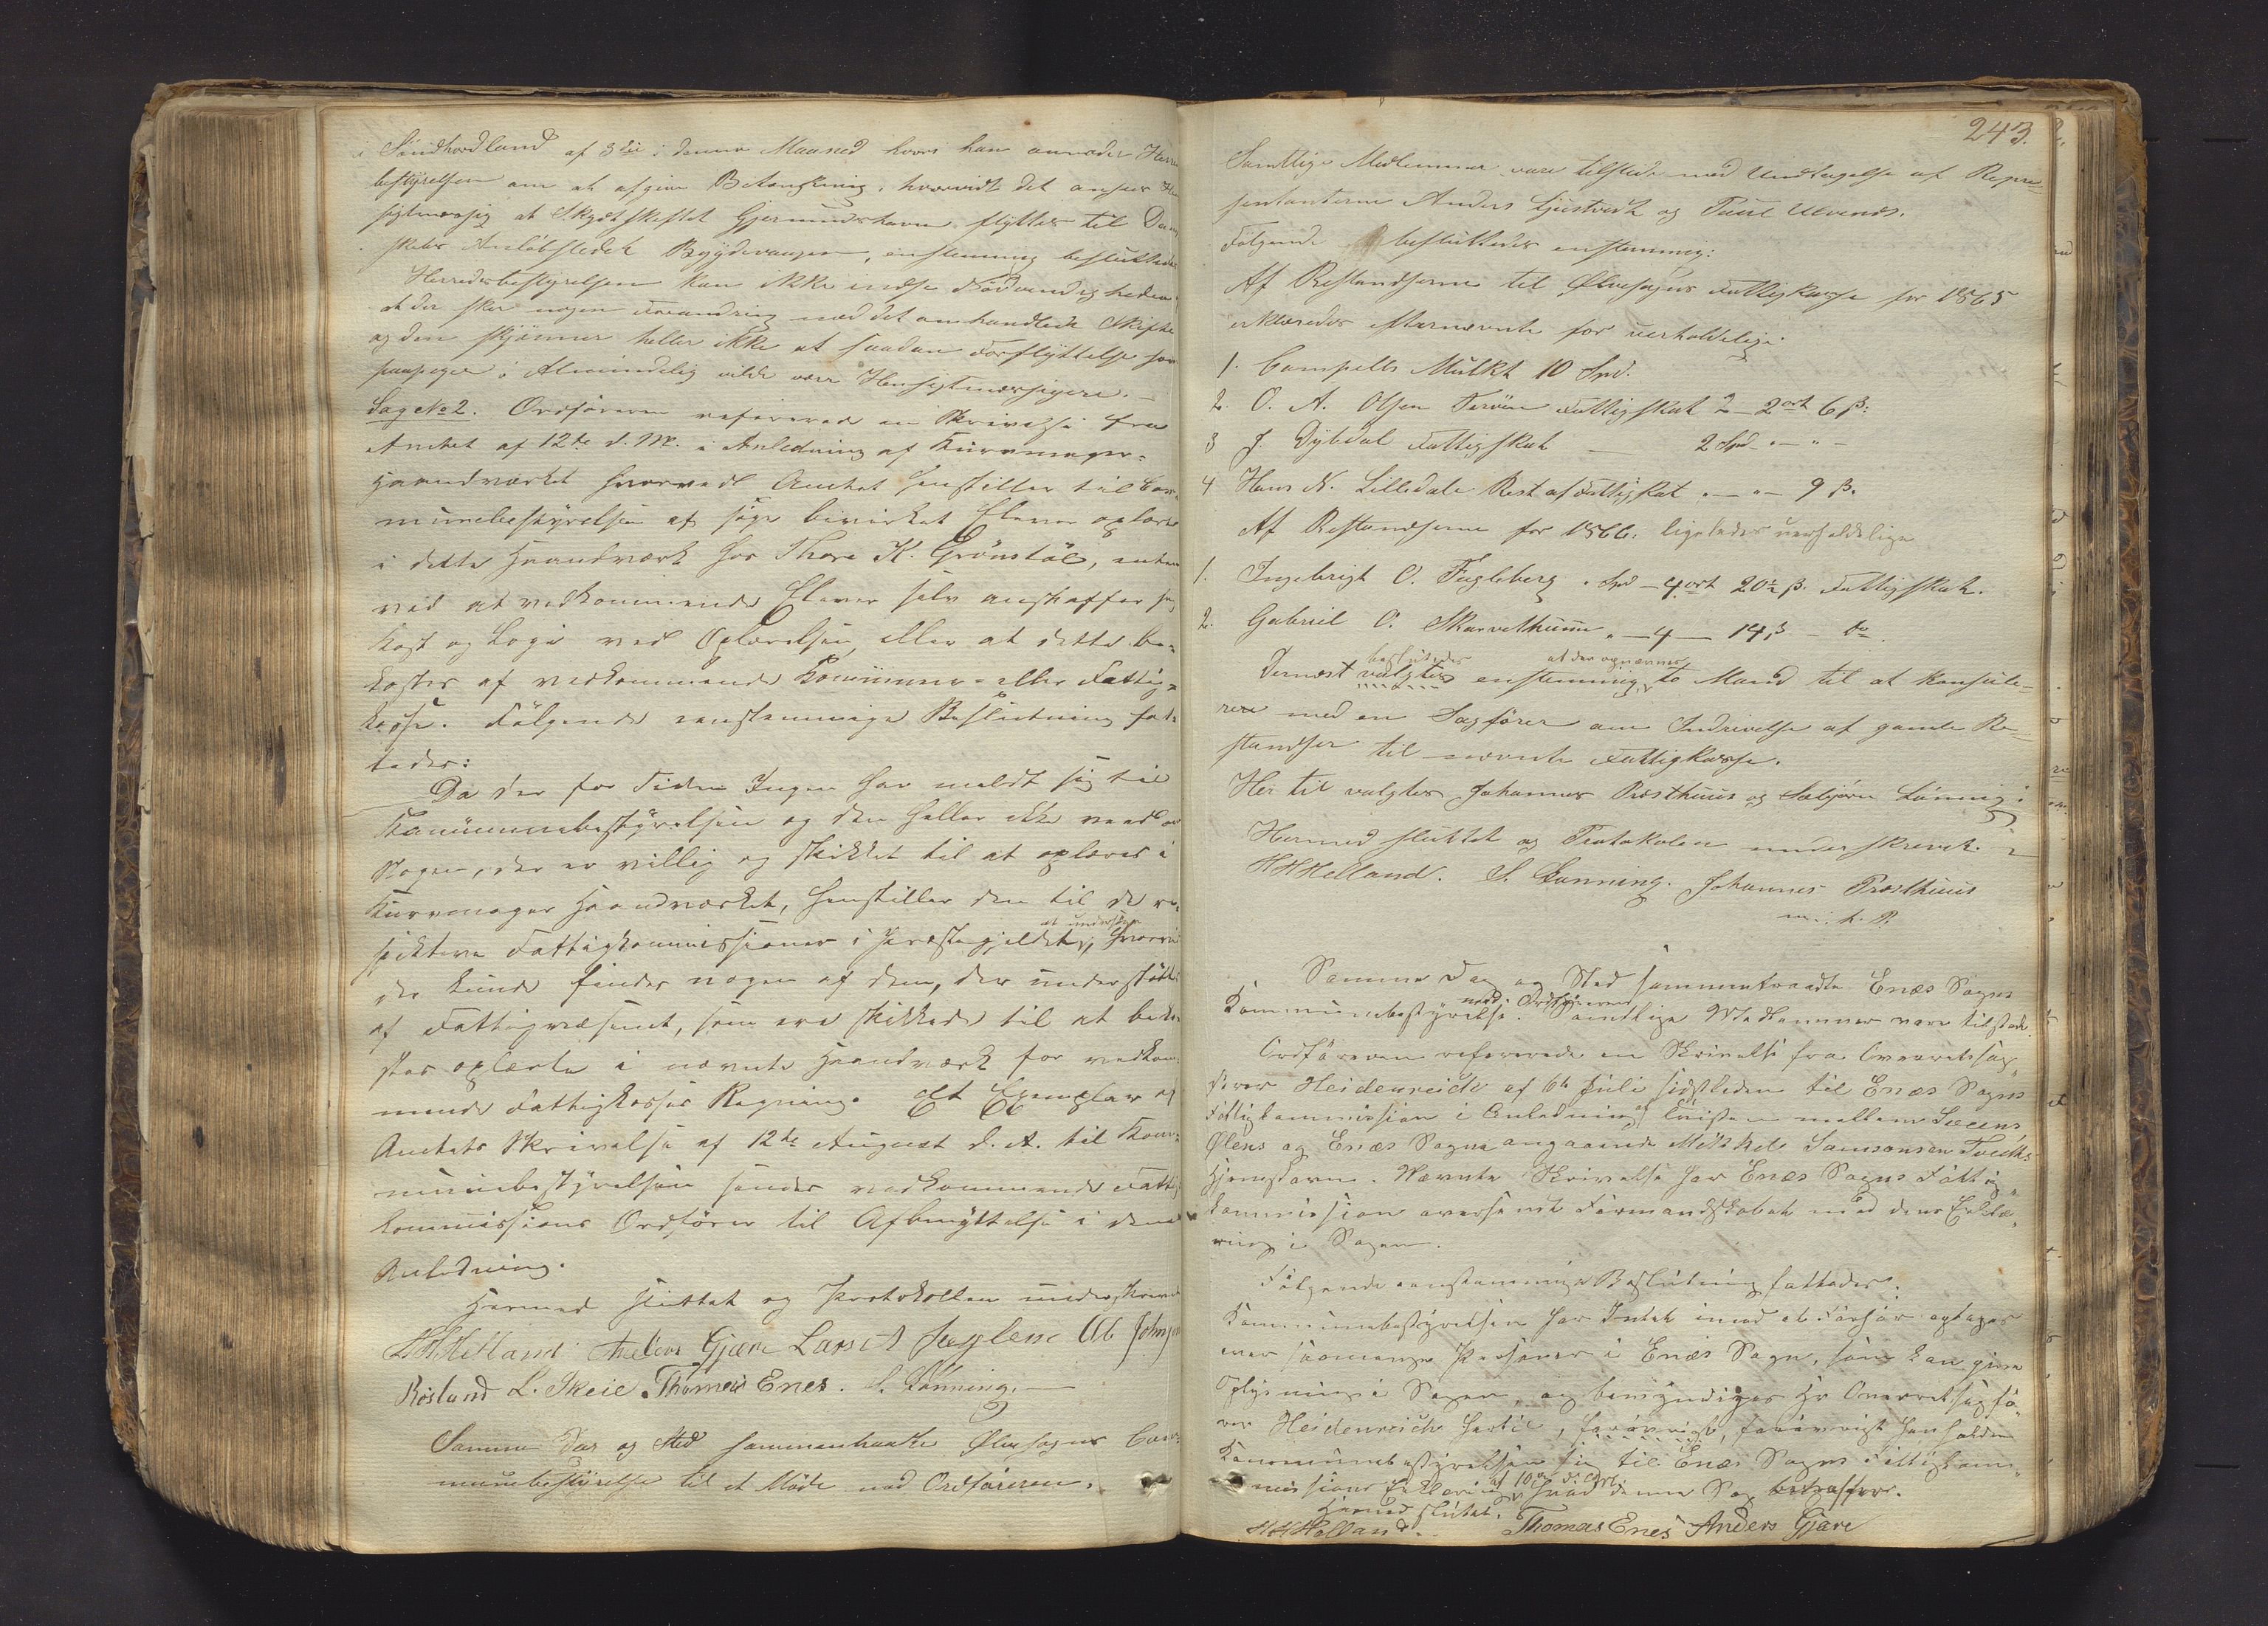 i Söndhordland af 3die i denne Maaned hvori han anmoder Herreds
bestyrelsen om at afgive Betænkning, hvorvidt det ansees Hen
sigtmæssig at Skydsskiftet Gjermundshavn flyttes til Dam
skibs Anløbstedet Bygdevaagen, enstemmig besluttedes
Herredsbestyrelsen kan ikke indse Nödvendigheden
at der sker nogen Forandring med det omhandlede Skifte
og den skjønner heller ikke at saadan Forflyttelse for
i Almindelig vilde være Hensigtmæssigere. —
Sag No 2. Ordföreren refererede en Skrivelse fra
Amtet af 12te d. M. i Anledning af Kurvmager-
Haandværket hvorved Amtet henstiller til Com-
munebestyrelsen at søge bevirket Elever oplært
i dette Haandværk hos Thore K. Grönstöl, enten
ved at vedkommende Elever selv anskaffer sig
Kost og Logi ved Oplærelsen, eller at dette be-
kostes af vedkommende Kommune- eller Fattig-
kasse. Følgende eenstemmige Beslutning fat-
tedes:
Da der for Tiden Ingen har meldt sig til
Kommunebestyrelsen og den heller ikke veed af
Nogen, der er villig og skikket til at oplæres i
Kurvmager Haandværket, henstiller den til de re-
spektive Fattigkommissioner i Præstegjeldet, at undersøge hvorvidt
der kunde findes nogen af dem, der understøttes
af Fattigvæsenet, som ere skikkede til at beko-
stes oplærte i nævnte Haandværk for vedkom-
mende Fattigkasses Regning. Et Exemplar af
Amtets Skrivelse af 12te August d. A. til Kom-
munebestyrelsen sendes vedkommende Fattig
kommissions Ordfører til Afbenyttelse i denne
Anledning.
Hermed sluttet og Protokollen underskrevet
H H Helland Anders Gjære Lars A Fuglene Ob Johnsen
Røsland L. Skeie Thomas Enes. S. Lönning. —
Samme Dag og Sted sammentraadte Ølve sogns Com-
munebestyrelse til et Möde med Ordföreren.
243.
Samtlige Medlemmer vare tilstede med Undtagelse af Repræ-
sentanterne Anders Ljustvedt og Poul Ulvenes.
Følgende besluttedes enstemmig:
Af Restandserne til Ølvesogns Fattigkasse for 1865
erklæredes efternævnte for uerholdelige.
1. Campells Mulkt 10 Spd.
2. O. A. Olsen Terøen Fattigskat 2 – 2 ort 6 ß:
3 J. Dybdal Fattigskat — 2 Spd – " –
4 Hans N. Lilledale Rest af Fattigskat " – " – 9 ß.
Af Restandserne for 1866. ligeledes uerholdelige
1. Ingebrigt O. Fugleberg " Spd – 4 ort 20½ ß. Fattigskat.
2. Gabriel O. Skarvethuun " – 4 – 14 ß – do
besluttedes at der opnævnes
Dernæst valgtes enstemmig to Mand til at konsule-
rere med en Sagfører om Indrivelse af gamle Re-
standser til nævnte Fattigkasse.
Her til valgtes Johannes Præsthuus og Sæbjørn Lönning.
Hermed sluttet og Protokolen underskrevet.
H H Helland. S. Lönning. Johannes Præsthuus
m. i. P.
Samme Dag og Sted sammentraadte Enæs Sogns
Kommunebestyrelse med Ordføreren. Samtlige Medlemmer vare tilstede.
Ordføreren refererede en Skrivelse fra Overretssag-
fører Heidenreich af 6te Juli sidstleden til Enæs Sogns
Fattigkommission i Anledning af Tvisten mellem Skeens,
Ølens og Enæs Sogne angaaende Mikkel Samsonsen Tveits
Hjemstavn. Nævnte Skrivelse har Enæs Sogns Fattig-
kommission oversendt Formandskabet med dens Erklæ-
ring i Sagen.
Følgende eenstemmige Beslutning fattedes:
Kommunebestyrelsen har Intet imod at Forhør optages
over saamange Personer i Enæs Sogn, som kan give
Oplysning i Sagen, og bemyndiges Hr Overretssagfö-
rer Heidenreich hertil, forøvrigt, forøvrigt henholder
Kommunebestyrelsen sig til Enæs Sogns Fattigkom-
missions Erklæring af 10de d: A: hvad denne Sag betræffer.
Hermed sluttet.
H H Helland. Thomas Enes Anders Gjære